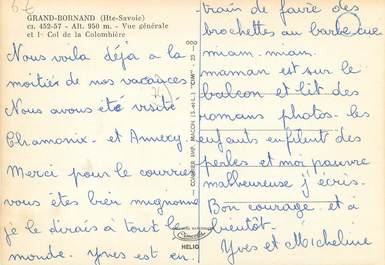 GRAND-BORNAND (Hte-Savoie)
ca. 452-57 - Alt. 950 m. - Vue générale
et le Col de la Colombière
Nous voila déja a la
moitiés de nos vacances
Nous avons été visité
Chamonix et Annecy.
Merci pour le courrier
vous êtes bien mignonne
je le dirais à tout le
monde. Yves est en
COMBIER IMP. MACON (S.-et-L.) "CIM"
HELIO
train de faire des
brochettes au barbecue
miam. miam.
maman est sur le
balcon et lit des
romans photos. les
enfants enfilent des
perles et moi pauvre
malheureuse j'écris.
Bon courage et à
bientôt.
Yves et Micheline